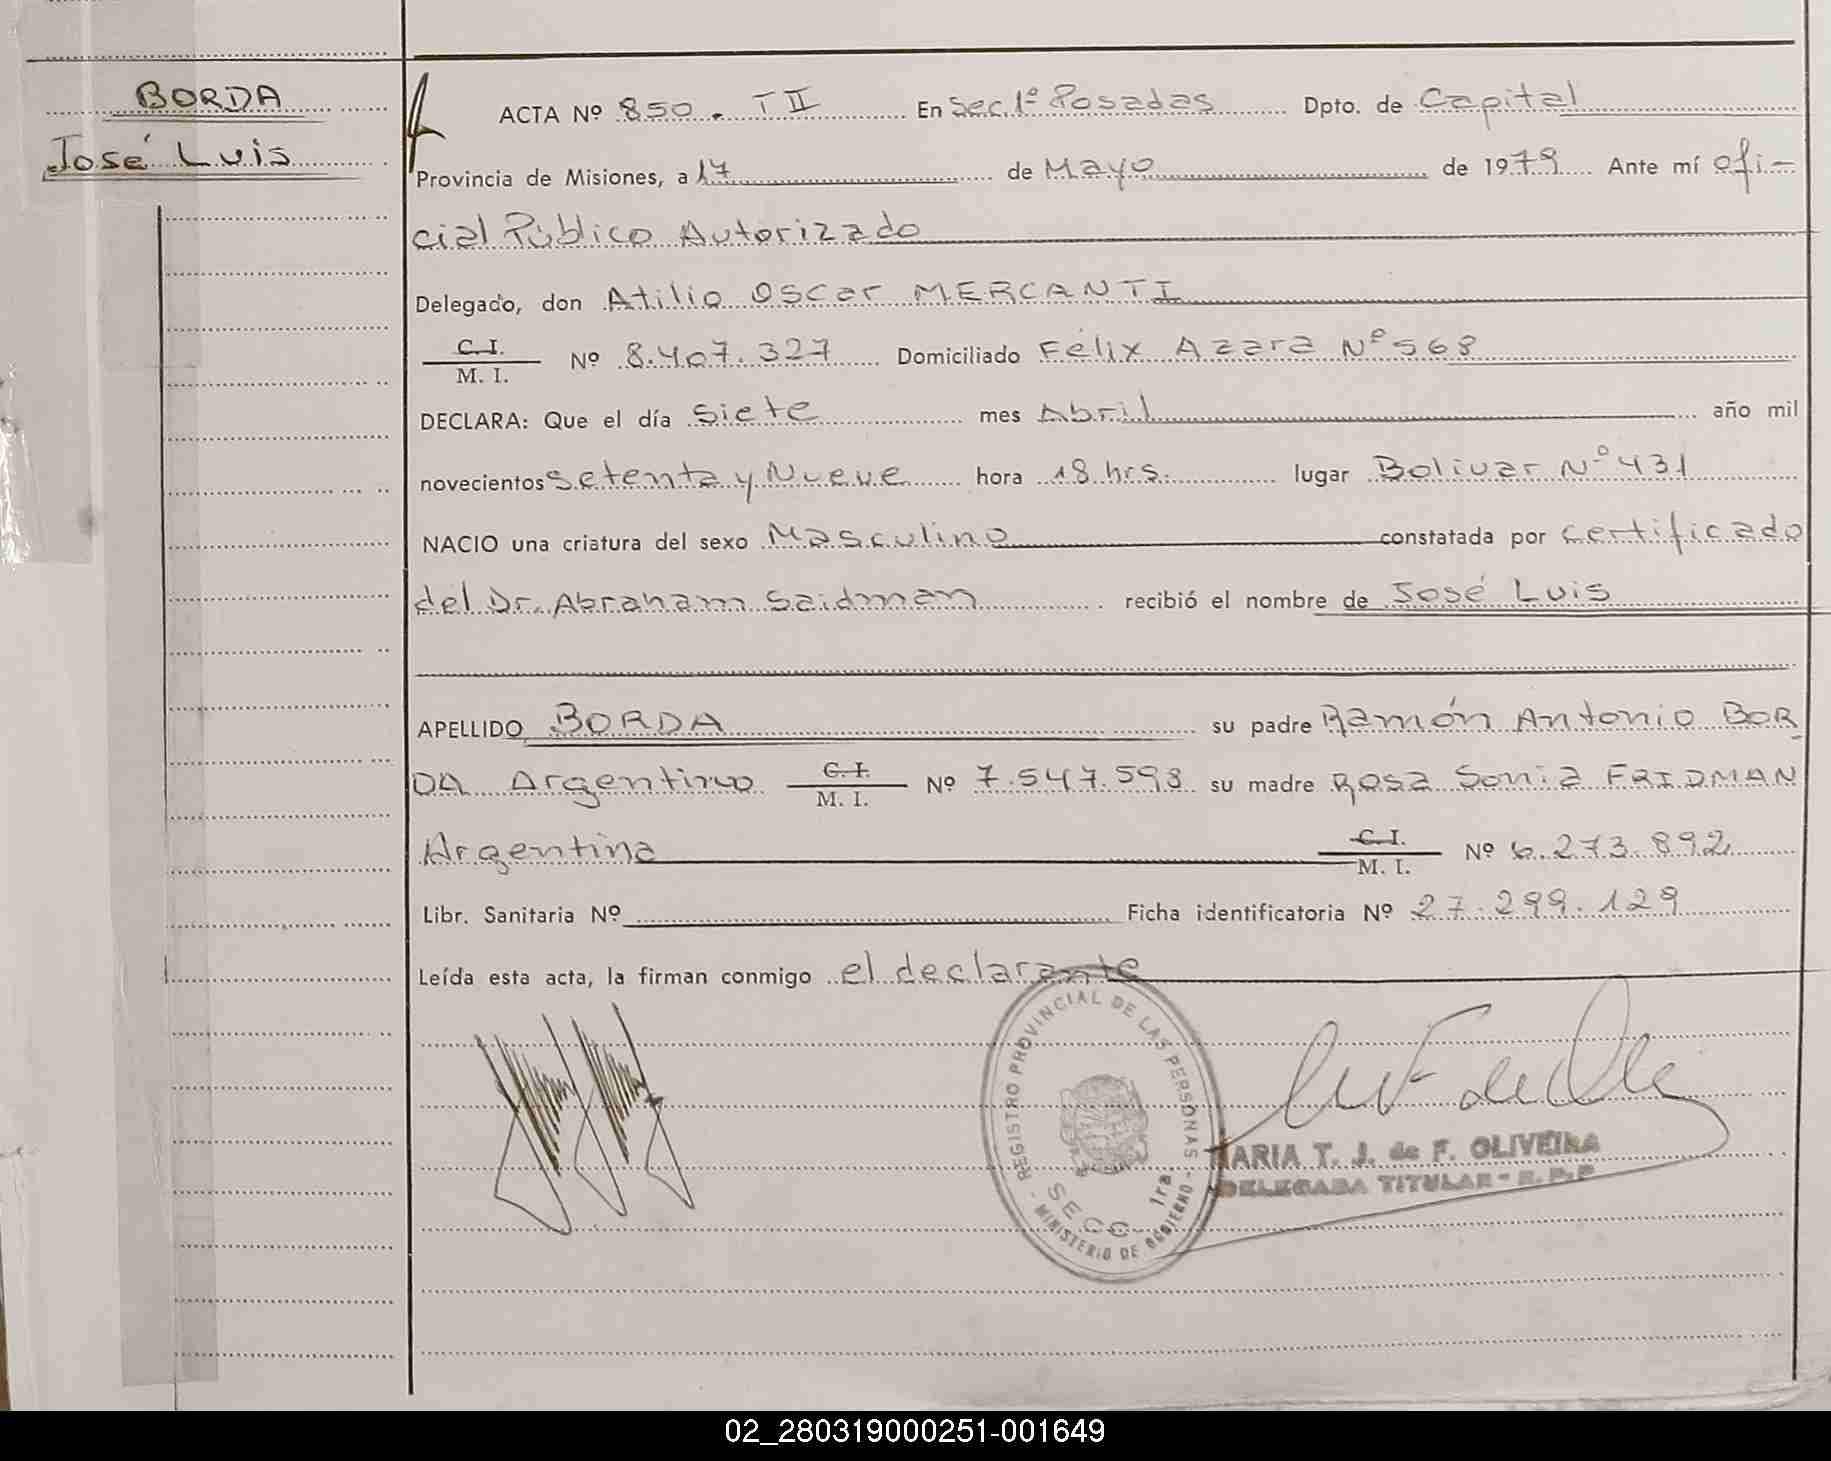 BORDA
José Luis
ACTA Nº 850. T II En Sec. 1ª Posadas Dpto. de Capital
Provincia de Misiones, a 17 de Mayo de 1979 Ante mí ofi-
cial Público Autorizado
Delegado, don Atilio Oscar MERCANTI
C. I.
M. I. Nº 8.407.327 Domiciliado Félix Azara Nº 568
DECLARA: Que el día siete mes Abril año mil
novecientos setenta y Nueve hora 18 hrs. lugar Bolivar Nº 431
NACIO una criatura del sexo Masculino constatada por certificado
del Dr. Abraham Saidman recibió el nombre de José Luis
APELLIDO BORDA su padre Ramón Antonio BOR
DA Argentino C. I. M. I. Nº 7.547.598 su madre Rosa Sonia FRIDMAN
Argentina C. I. M. I. Nº 6.273.892
Libr. Sanitaria Nº Ficha identificatoria Nº 27.299.129
Leída esta acta, la firman conmigo el declarante
REGISTRO PROVINCIAL DE LAS PERSONAS
SECC. 1ra
- MINISTERIO DE GOBIERNO -
MARIA T. J. de F. OLIVEIRA
DELEGADA TITULAR - R. P. P
02_280319000251-001649